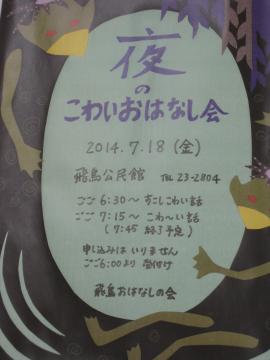 夜
の
こわいおはなし会
2014.7.18(金)
飛鳥公民館 TEL 23-2804
ごご6:30~すこしこわい話
ごご7:15~こわ~い話
(7:45 終了予定)
申し込みはいりません
ごご6:00より 受付け
飛鳥おはなしの会